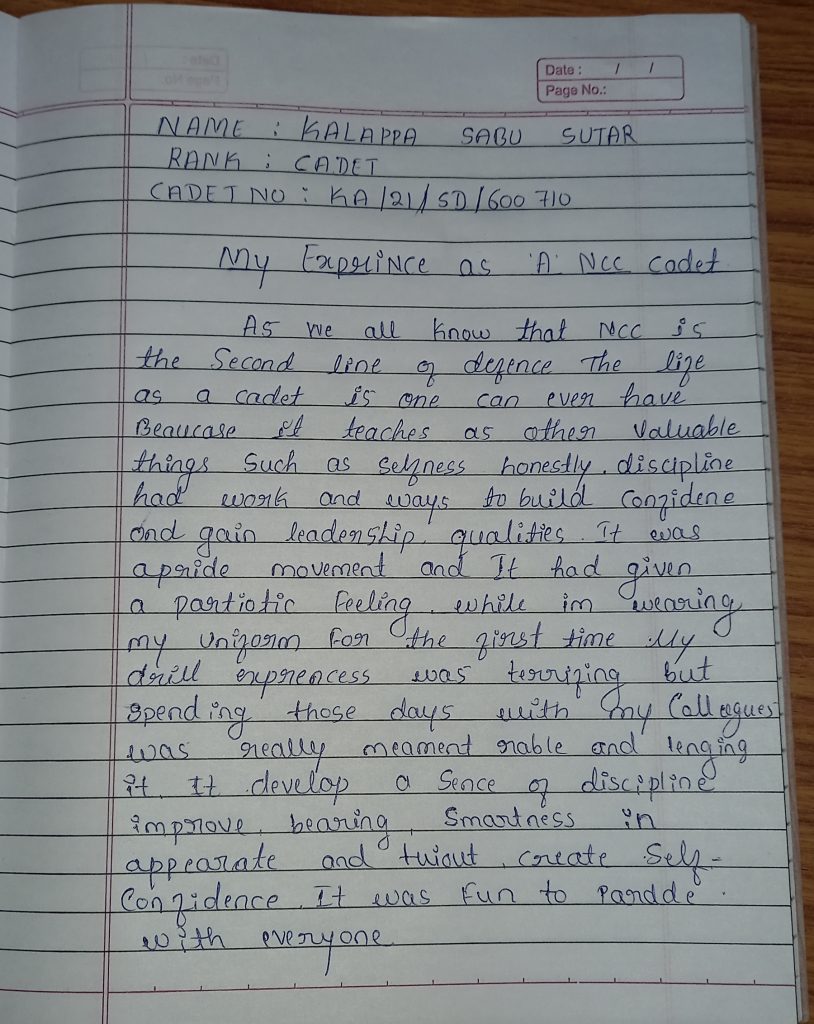 Date : / /
Page No.:
NAME : KALAPPA SABU SUTAR
RANK : CADET
CADET NO : KA/21/SD/600 710
My ExpriNce as 'A' NCC cadet
As we all know that NCC is
the Second line of defence The life
as a cadet is one can ever have
Beaucase it teaches as other Valuable
things Such as selfness honestly. discipline
had work and ways to build Confidene
and gain leadership. qualities. It was
apride movement and It had given
a partiotic Feeling. while im wearing
my uniform For the first time My
drill expriencess was terrifing but
spending those days with my Colleagues
was really meament rable and lenging
it. It develop a Sence of discipline
improve. bearing. Smartness in
appearate and twiout. create Self-
Confidence. It was Fun to Pardde.
with everyone